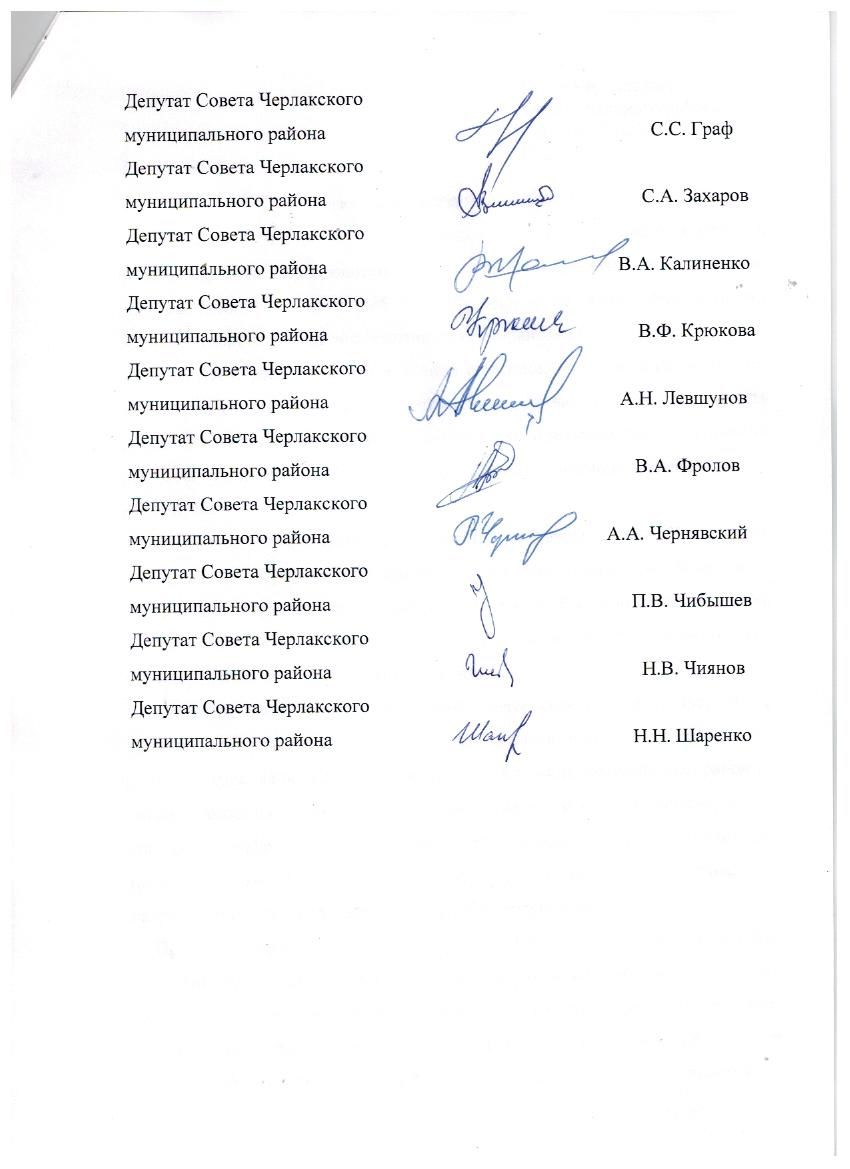 Депутат Совета Черлакского
муниципального района С.С. Граф
Депутат Совета Черлакского
муниципального района С.А. Захаров
Депутат Совета Черлакского
муниципального района В.А. Калиненко
Депутат Совета Черлакского
муниципального района В.Ф. Крюкова
Депутат Совета Черлакского
муниципального района А.Н. Левшунов
Депутат Совета Черлакского
муниципального района В.А. Фролов
Депутат Совета Черлакского
муниципального района А.А. Чернявский
Депутат Совета Черлакского
муниципального района П.В. Чибышев
Депутат Совета Черлакского
муниципального района Н.В. Чиянов
Депутат Совета Черлакского
муниципального района Н.Н. Шаренко